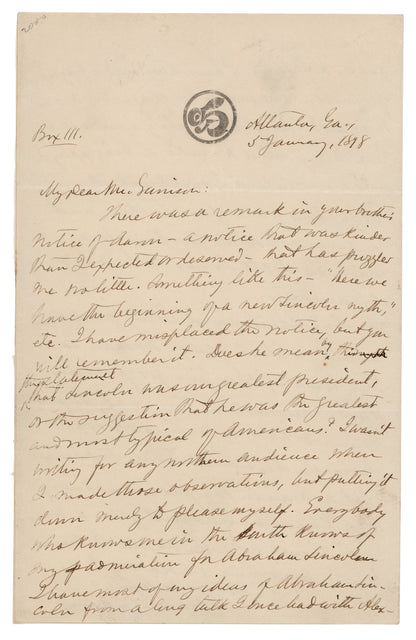 Box 111.
Atlanta, Ga.,
5 January, 1898
My Dear Mr. Garrison:
There was a remark in your brother's
notice of Aaron — a notice that was kinder
than I expected or deserved — that has puzzled
me no little. Something like this — "Here we
have the beginning of a new Lincoln myth,"
etc. I have misplaced the notice, but you
will remember it. Does he mean by
the statement
that Lincoln was our greatest president,
or the suggestion that he was the greatest
and most typical of Americans? I wasn't
writing for any northern audience when
I made those observations, but putting it
down merely to please myself. Everybody
who knows me in the South knows of
my admiration for Abraham Lincoln
I have most of my ideas of Abraham Lin-
coln from a long talk I once had with Alex-